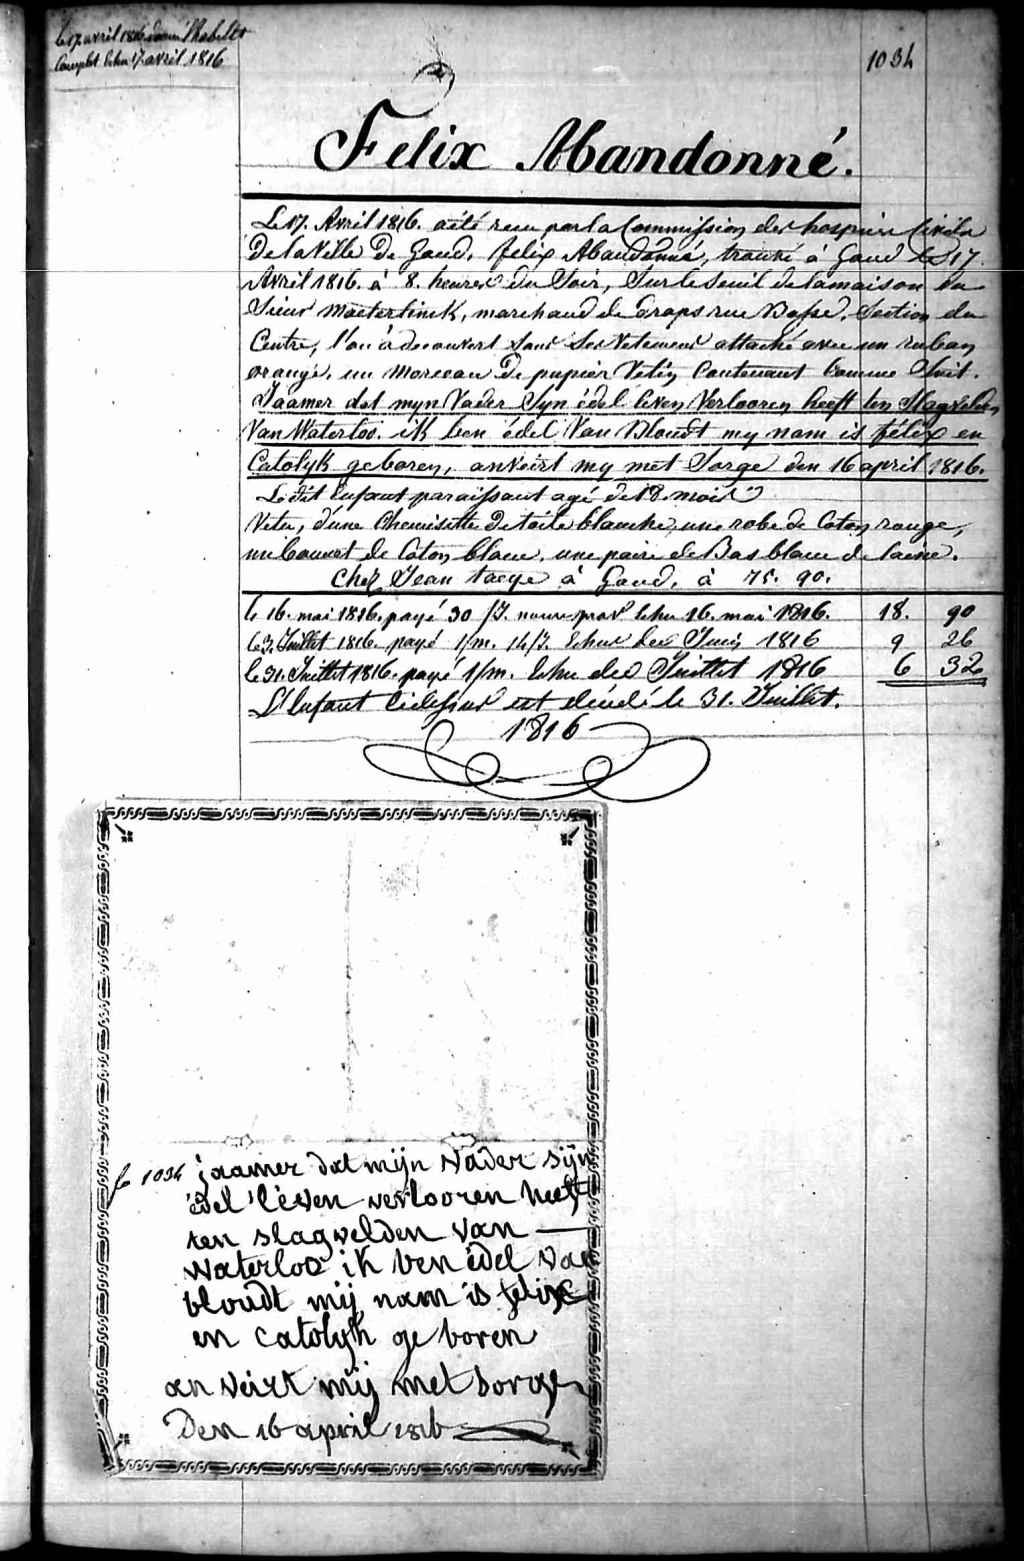 le 17 avril 1816 donné l'habillt
Complet Echu 17 avril 1816
1034
Felix Abandonné.
Le 17. Avril 1816. a été reçu par la Commission des hospices Civils
De la Ville De Gand, felix Abandonné, trouvé à Gand le 17.
Avril 1816. à 8. heures du Soir, Sur le Seuil de la maison du
Sieur Maeterlinck, marchand de Draps rue Basse, Section du
Centre, l'on a decouvert Sous Ses Vetemens attaché avec un ruban
orange, un Morceau De papier Velin Contenant Comme Suit.
Jaamer dat myn Vader Syn édel leven Verlooren heeft ten Slagvelden
Van Waterloo. ik ben édel Van Bloudt my nam is félix en
Catolyk geboren, anveirt my met Sorge den 16 april 1816.
Ledit Enfant paraissant agé de 18. mois
Vetu, d'une Chemisette De toile blanche, une robe de Coton rouge,
un bonnet de Coton blanc, une paire de Bas blanc de laine.
Chez Jean taeye à Gand, à 75. 90.
le 16. mai 1816. payé 30 /J. nourr. pour Echu 16. mai 1816. 18. 90
le 3. Juillet 1816. payé 1/m. 14/J. Echus des Juin 1816 9 26
le 31. Juillet 1816. payé 1/m. Echu des Juillet 1816 6 32
L'Enfant Cidessus est décédé le 31. Juillet.
1816
fo 1034 jaamer dat mijn vader sijn
édel léven verlooren heeft
ten slagvelden van
waterloo ik ben édel van
bloudt mij nam is felix
en catolyk ge boren
an veirt mij met sorge
Den 16 april 1816